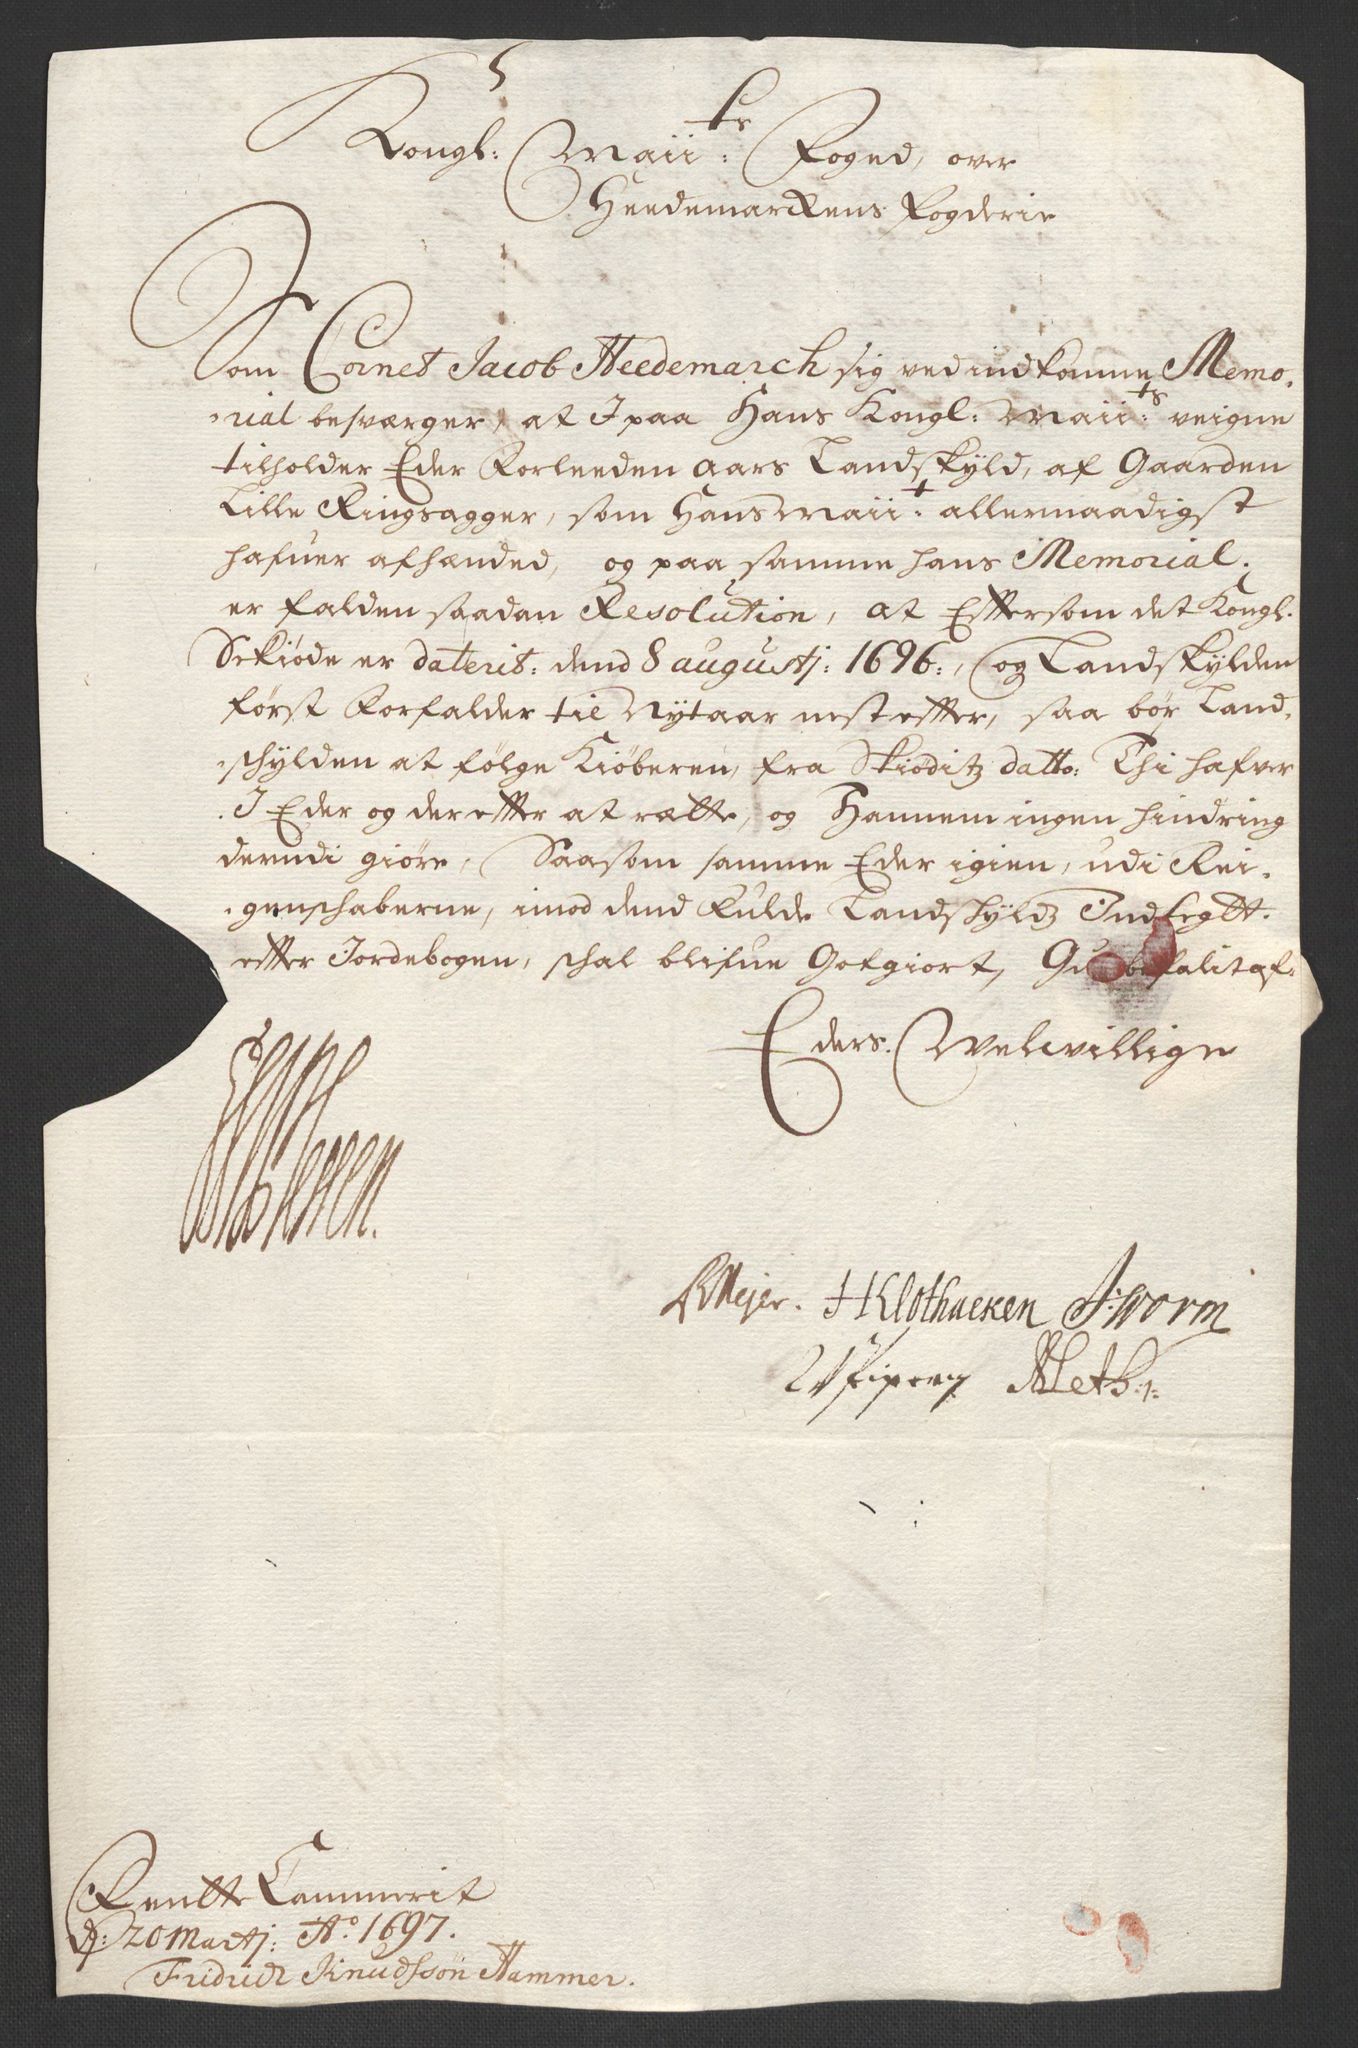 Kongl: Maii:ts Foged, over
Heedemarckens Fogderie
Som Cornet Jacob Heedemarch sig ved indkomne Memo-
rial besværger, at I paa Hans Kongl: Maii:ts veigne
tilholder Eder Forleeden aars Landskyld, af Gaarden
Lille Ringsagger, som Hans Maii:t allernaadigst
hafuer afhænded, og paa samme hans Memorial.
er falden saadan Resolution, at Effterson det Kongl.
Sckiøde er daterit: dend 8 augustj: 1696:, og Landskylden
først Forfalder til Nytaar nest effter, saa bør Land-
schylden at følge Kiøberen, fra Skiøditz datto: Thi hafver
I Eder og dereffter at rætte, og Hannem ingen hindring
derudi giøre, Saasom samme Eder igien, udi Rei-
genschaberne, imod dend Fulde Landschyldz
effter Jordebogen, schal blifue Gotgiort,
Eders. Welvillige
Meyer. HKlothacken J:Worm
Rentte Cammerit
d: 20 Martj: Ao: 1697.
Fridrich Knudssøn Hammer.